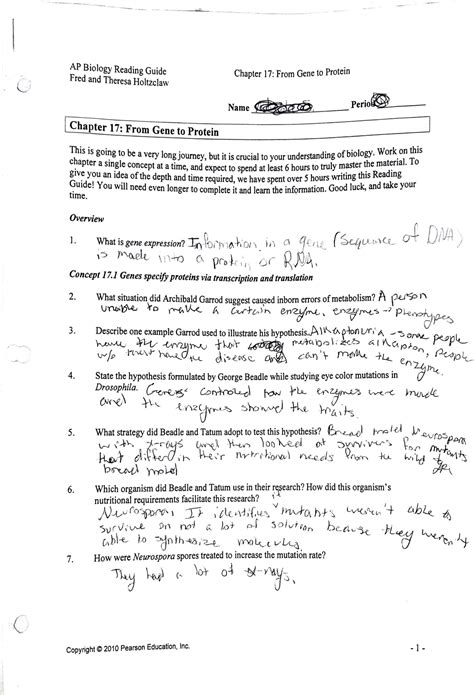 AP Biology Reading Guide
Fred and Theresa Holtzclaw
Chapter 17: From Gene to Protein
Name
Period
Chapter 17: From Gene to Protein
This is going to be a very long journey, but it is crucial to your understanding of biology. Work on this
chapter a single concept at a time, and expect to spend at least 6 hours to truly master the material. To
give you an idea of the depth and time required, we have spent over 5 hours writing this Reading
Guide! You will need even longer to complete it and learn the information. Good luck, and take your
time.
Overview
1. What is gene expression? Information in a gene (sequence of DNA)
is made into a protein or RNA.
Concept 17.1 Genes specify proteins via transcription and translation
2. What situation did Archibald Garrod suggest caused inborn errors of metabolism? A person
unable to make a certain enzyme, enzymes → phenotypes
3. Describe one example Garrod used to illustrate his hypothesis. Alkaptonuria - some people
have the enzyme that metabolizes alkapton, people
w/o the disease can't make the enzyme.
4. State the hypothesis formulated by George Beadle while studying eye color mutations in
Drosophila. Genes controlled how the enzymes were made
and the enzymes showed the traits.
5. What strategy did Beadle and Tatum adopt to test this hypothesis? Bread mold Neurospora
with x-rays and then looked at survivors for mutants
that differ in their nutritional needs from the wild
bread mold
6. Which organism did Beadle and Tatum use in their research? How did this organism's
nutritional requirements facilitate this research?
Neurospora: It identifies it mutants weren't able to
survive on not a lot of solution because they weren't
able to synthesize molecules.
7. How were Neurospora spores treated to increase the mutation rate?
They had a lot of x-rays.
Copyright © 2010 Pearson Education, Inc.
- 1 -